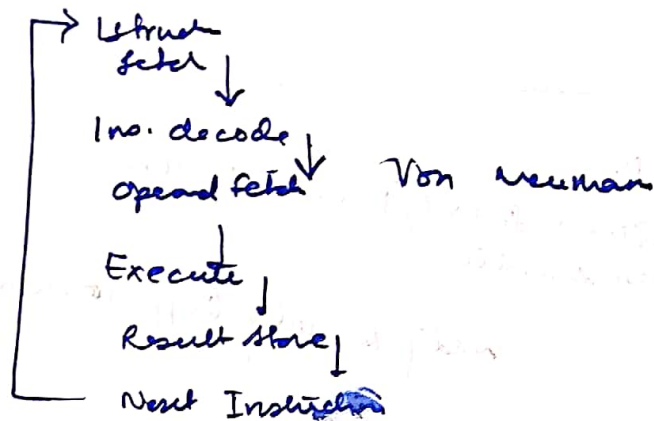 Istruch
fetch
Ins. decode
operand fetch
Von Neuman
Execute
Result store
Next Instruction